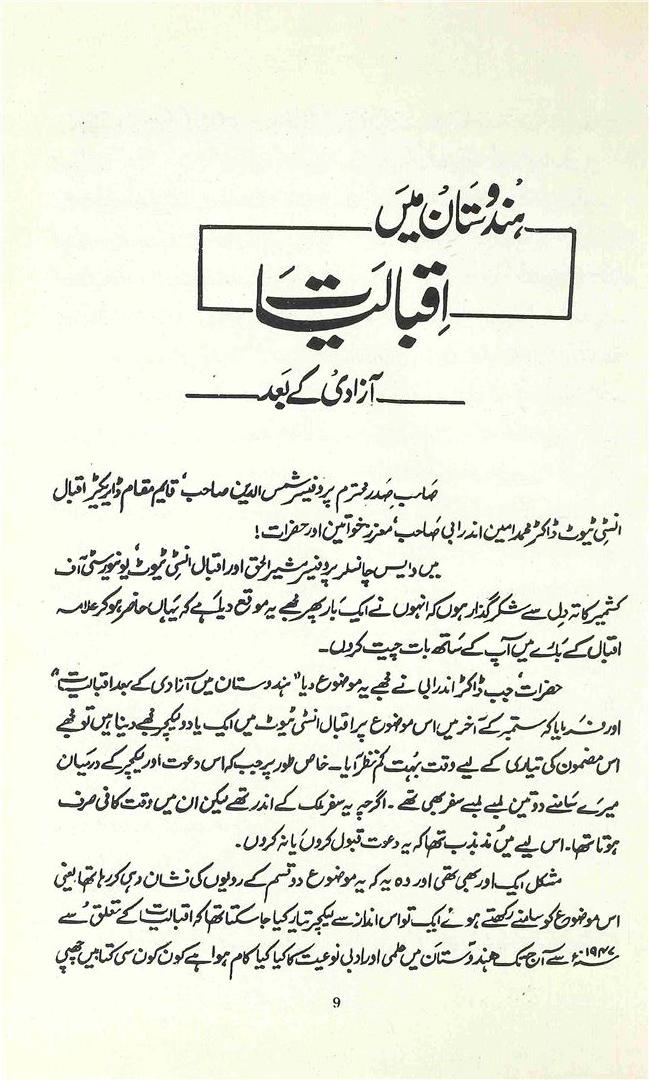 ہندوستان میں
اقبالیات
آزادی کے بعد
صاحبِ صدر محترم پروفیسر شمس الدین صاحب، قایم مقام ڈایریکٹر اقبال
انسٹی ٹیوٹ ڈاکٹر محمد امین اندرابی صاحب، معزز خواتین اور حضرات!
میں وایس چانسلر پروفیسر مشیر الحق اور اقبال انسٹی ٹیوٹ، یونیورسٹی آف
کشمیر کا تہ دِل سے شکر گذار ہوں کہ انہوں نے ایک بار پھر مجھے یہ موقع دیا ہے کہ یہاں حاضر ہو کر علامہ
اقبال کے بارے میں آپ کے ساتھ بات چیت کروں۔
حضرات، جب ڈاکٹر اندرابی نے مجھے یہ موضوع دیا "ہندوستان میں آزادی کے بعد اقبالیات"
اور فرمایا کہ ستمبر کے آخر میں اس موضوع پر اقبال انسٹی ٹیوٹ میں ایک یا دو لیکچر مجھے دینا ہیں تو مجھے
اس مضمون کی تیاری کے لیے وقت بہت کم نظر آیا۔ خاص طور پر جب کہ اس دعوت اور لیکچر کے درمیان
میرے سامنے دو تین لمبے لمبے سفر بھی تھے۔ اگرچہ یہ سفر ملک کے اندر تھے لیکن ان میں وقت کافی صرف
ہوتا تھا۔ اس لیے میں مُذبذب تھا کہ یہ دعوت قبول کروں یا نہ کروں۔
مشکل ایک اور بھی تھی اور وہ یہ کہ یہ موضوع دو قسم کے رویوں کی نشان دہی کر رہا تھا یعنی
اس موضوع کو سامنے رکھتے ہوئے ایک تو اس انداز سے لیکچر تیار کیا جا سکتا تھا کہ اقبالیات کے تعلق سے
۱۹۴۷ء سے آج تک ہندوستان میں علمی اور ادبی نوعیت کا کیا کیا کام ہوا ہے کون کون سی کتابیں چھپی
9